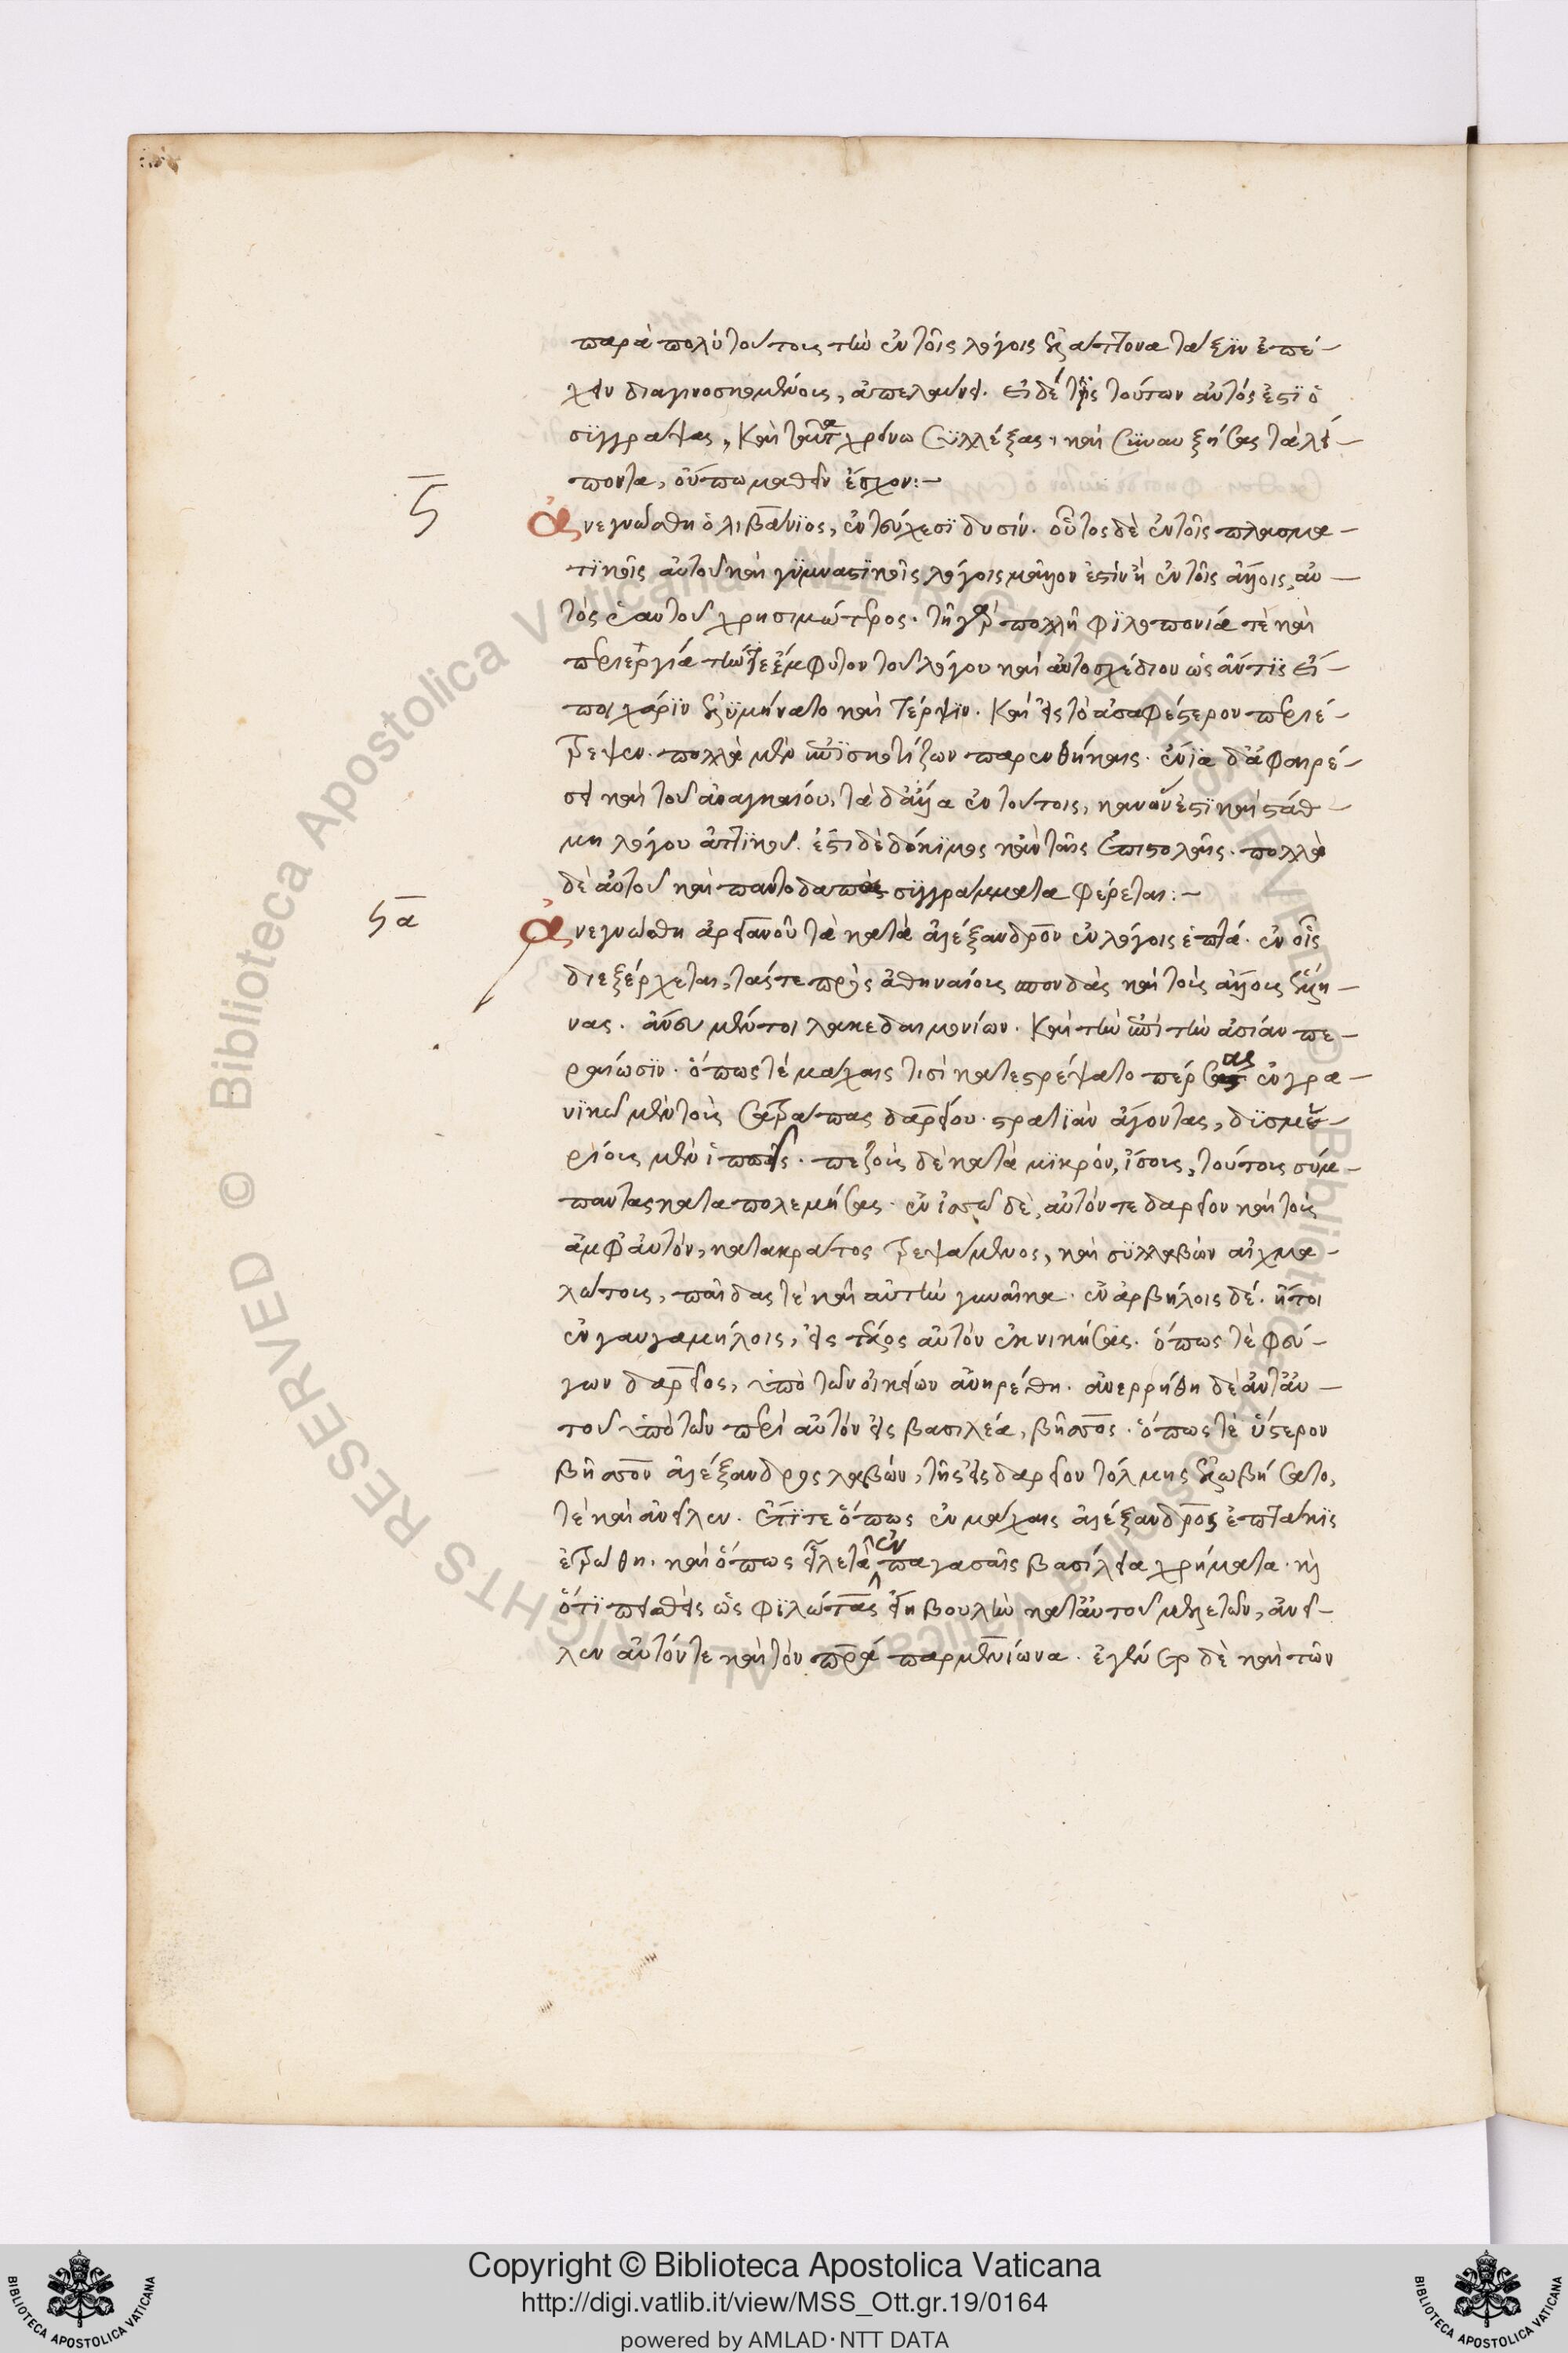 παρὰ πολὺ τούτοις τὴν ἐν τοῖς λόγοις ἐλάττονα τάξιν ἐπέ-
χειν διαγινοσκομένοις, ἀπελαύνει. εἰ δέ τις τούτων αὐτός ἐστι ὁ
συγγραψας, καὶ ταῦτα χρόνω συλλέξας, καὶ συναυξήσας τὰ λεί-
ποντα, οὔπω μαθεῖν ἔσχον:-
ϟ
ἀνεγνώσθη ὁ λιβάνιος, ἐν τεύχεσι δυσίν. οὗτος δὲ ἐν τοῖς πλασμα-
τικοῖς αὐτοῦ καὶ γυμναστικοῖς λόγοις μᾶλλον ἐστὶν ἢ ἐν τοῖς ἄλλοις, αὐ-
τὸς ἑαυτοῦ χρησιμώτερος. τῆ γὰρ πολλῆ φιλοπονία τὲ καὶ
περιεργία τὴν τε ἔμφυτον τοῦ λόγου καὶ αὐτοσχέδιον ὡς ἄν τις εἴ-
ποι χάριν ἐλυμήνατο καὶ τέρψιν. καὶ εἰς τὸ ἀσαφέστερον περιέ-
τρεψεν. πολλὰ μὲν ἐπισκοτίζων παρενθήκαις. ἔνια δ' ἀφαιρέ-
σει καὶ τοῦ ἀναγκαίου. τὰ δ' ἄλλα ἐν τούτοις, κανών ἐστι καὶ στάθ-
μη λόγου ἀττικοῦ. ἔστι δὲ δόκιμος κἀν ταῖς ἐπιστολαῖς. πολλὰ
δὲ αὐτοῦ καὶ παντοδαπὰ συγγράμματα φέρεται:-
ϟα
ἀνεγνώσθη ἀρειανοῦ τὰ κατὰ ἀλέξανδρον ἐν λόγοις ἑπτά. ἐν οἷς
διεξέρχεται, τάς τε πρὸς ἀθηναίους σπονδὰς καὶ τοὺς ἄλλους ἕλλη-
νας. ἄνευ μέντοι λακεδαιμονίων. καὶ τὴν ἐπὶ τὴν ἀσίαν πε-
ραίωσιν. ὅπως τέ μάχαις τισὶ κατεστρέψατο πέρσας ἐν γρα-
νικῶ μὲν τοὺς σατράπας δαρείου. στρατιὰν ἄγοντας, δισμυ-
ρίοις μὲν ἱππεῖς. πεζοὺς δὲ κατὰ μικρόν, ἴσους, τούτους σύμ-
παντας καταπολεμήσας. ἐν ἰσσῶ δὲ, αὐτόν τε δαρεῖον καὶ τοὺς
ἀμφ' αὐτόν, κατακράτος τρεψάμενος, καὶ συλλαβὼν αἰχμα-
λώτους, παῖδας τὲ καὶ αὐτὴν γυναῖκα. ἐν ἀρβήλοις δέ. ἤτοι
ἐν γαυγαμήλοις, εἰς τέλος αὐτὸν ἐκνικήσας. ὅπως τὲ φεύ-
γων δαρεῖος, ὑπὸ τῶν οἰκείων ἀνηρέθη. ἀνερρήθη δὲ ἀντ' αὐ-
τοῦ ὑπὸ τῶν περὶ αὐτὸν εἰς βασιλέα, βῆσσος. ὅπως τὲ ὕστερον
βῆσσον ἀλέξανδρος λαβών, τῆς εἰς δαρεῖον τόλμης ἐλωβήσατο,
τὲ καὶ ἀνεῖλεν. ἔτι τε ὅπως ἐν μάχαις ἀλέξανδρος ἑπτάκις
ἐτρώθη. καὶ ὅπως εἷλε τὰ ἐν παγασαῖς βασίλεια χρήματα. καὶ
ὅτι πεισθεὶς ὡς φιλώτας ἐπιβουλὴν κατ' αὐτοῦ μελετῶν, ἀνεῖ-
λεν αὐτόν τε καὶ τὸν πατέρα παρμενίωνα. ἐγένετο δὲ καὶ τῶν
Copyright © Biblioteca Apostolica Vaticana
http://digi.vatlib.it/view/MSS_Ott.gr.19/0164
powered by AMLAD·NTT DATA